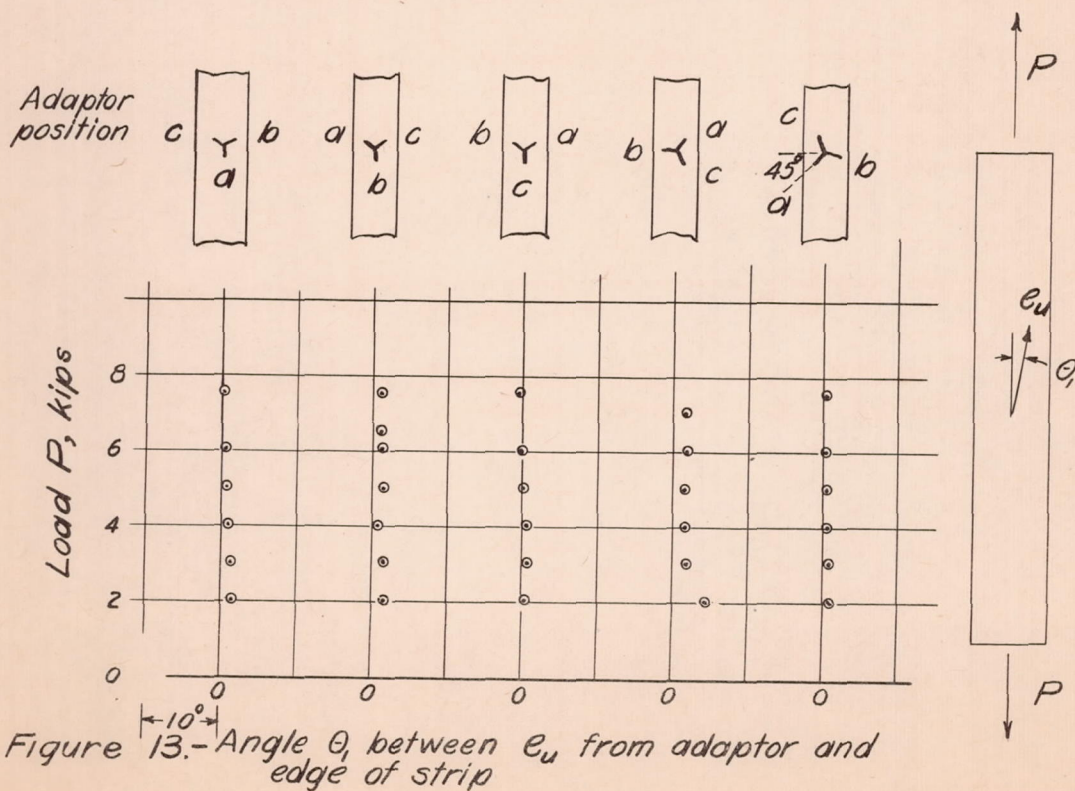 Adaptor
position
c b
a
a c
b
b a
c
a
b
c
c
45°
b
a
P
e_u
θ₁
Load P, kips
8
6
4
2
0
0 0 0 0 0
10°
P
Figure 13.- Angle θ₁ between e_u from adaptor and
edge of strip